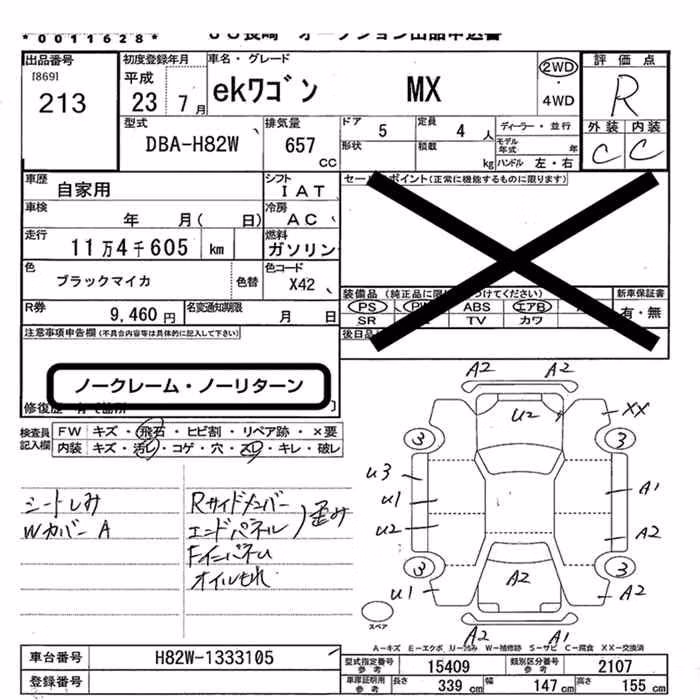 *0011628* オークション出品申込書
出品番号 初度登録年月 車名・グレード 評価点
[869] 平成 2WD
213 23 7月 ekワゴン MX ・4WD R
型式 排気量 ドア 5 定員 4 人 ディーラー・並行 外装 内装
DBA-H82W 657 cc 形状 積載 kg モデル年式 年 ハンドル 左・右 C C
車歴 自家用 シフト IAT セールスポイント(正常に機能するものに限ります)
車検 年 月( 日) 冷房 AC
走行 11万4千605 km 燃料 ガソリン
色 ブラックマイカ 色替 色コード X42
装備品 (純正品に限 つけてください) 新車保証書
R券 9,460円 名変通知期限 月 日 PS ABS エアB 有・無
SR TV カワ
注意事項申告欄(不具合内容等は具体的に記入して下さい) 後日品
ノークレーム・ノーリターン
修復歴
検査員記入欄 FW キズ・飛石・ヒビ割・リペア跡・×要
内装 キズ・汚レ・コゲ・穴・スレ・キレ・破レ
シートしみ Rサイドメンバー
Wカバー A エンドパネル )歪み
FインパネU
オイルもれ
A2 A2
U2 XX
3 3
U3
U1 A1
U2 A2
3 3
U1 A2 A2
A2 A1
スペア
A-キズ E-エクボ U-凹み W-補修跡 S-サビ C-腐食 XX-交換済
車台番号 H82W-1333105 型式指定番号 参考 15409 類別区分番号 参考 2107
登録番号 車庫証明用 参考 長さ 339 cm 幅 147 cm 高さ 155 cm